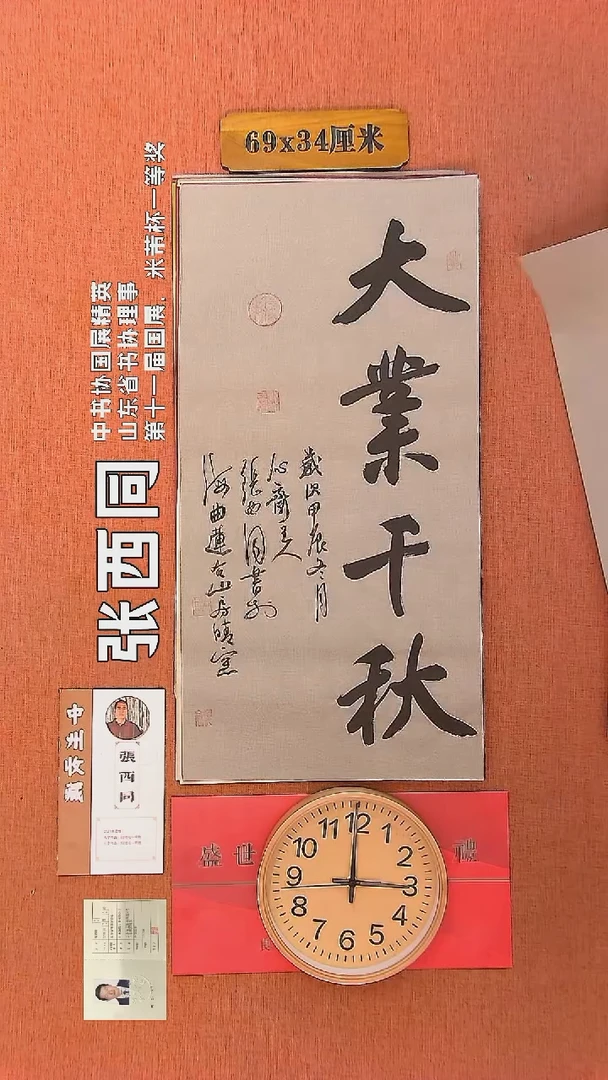 69x34厘米
大業千秋
歲次甲辰冬月
心齋主人
張西同書於
海曲蓮台山房晴窓
中书协国展精英
山东省书协理事
第十一届国展、米芾杯一等奖
张西同
張西同
盛世
禮
12
1
2
3
4
5
6
7
8
9
10
11